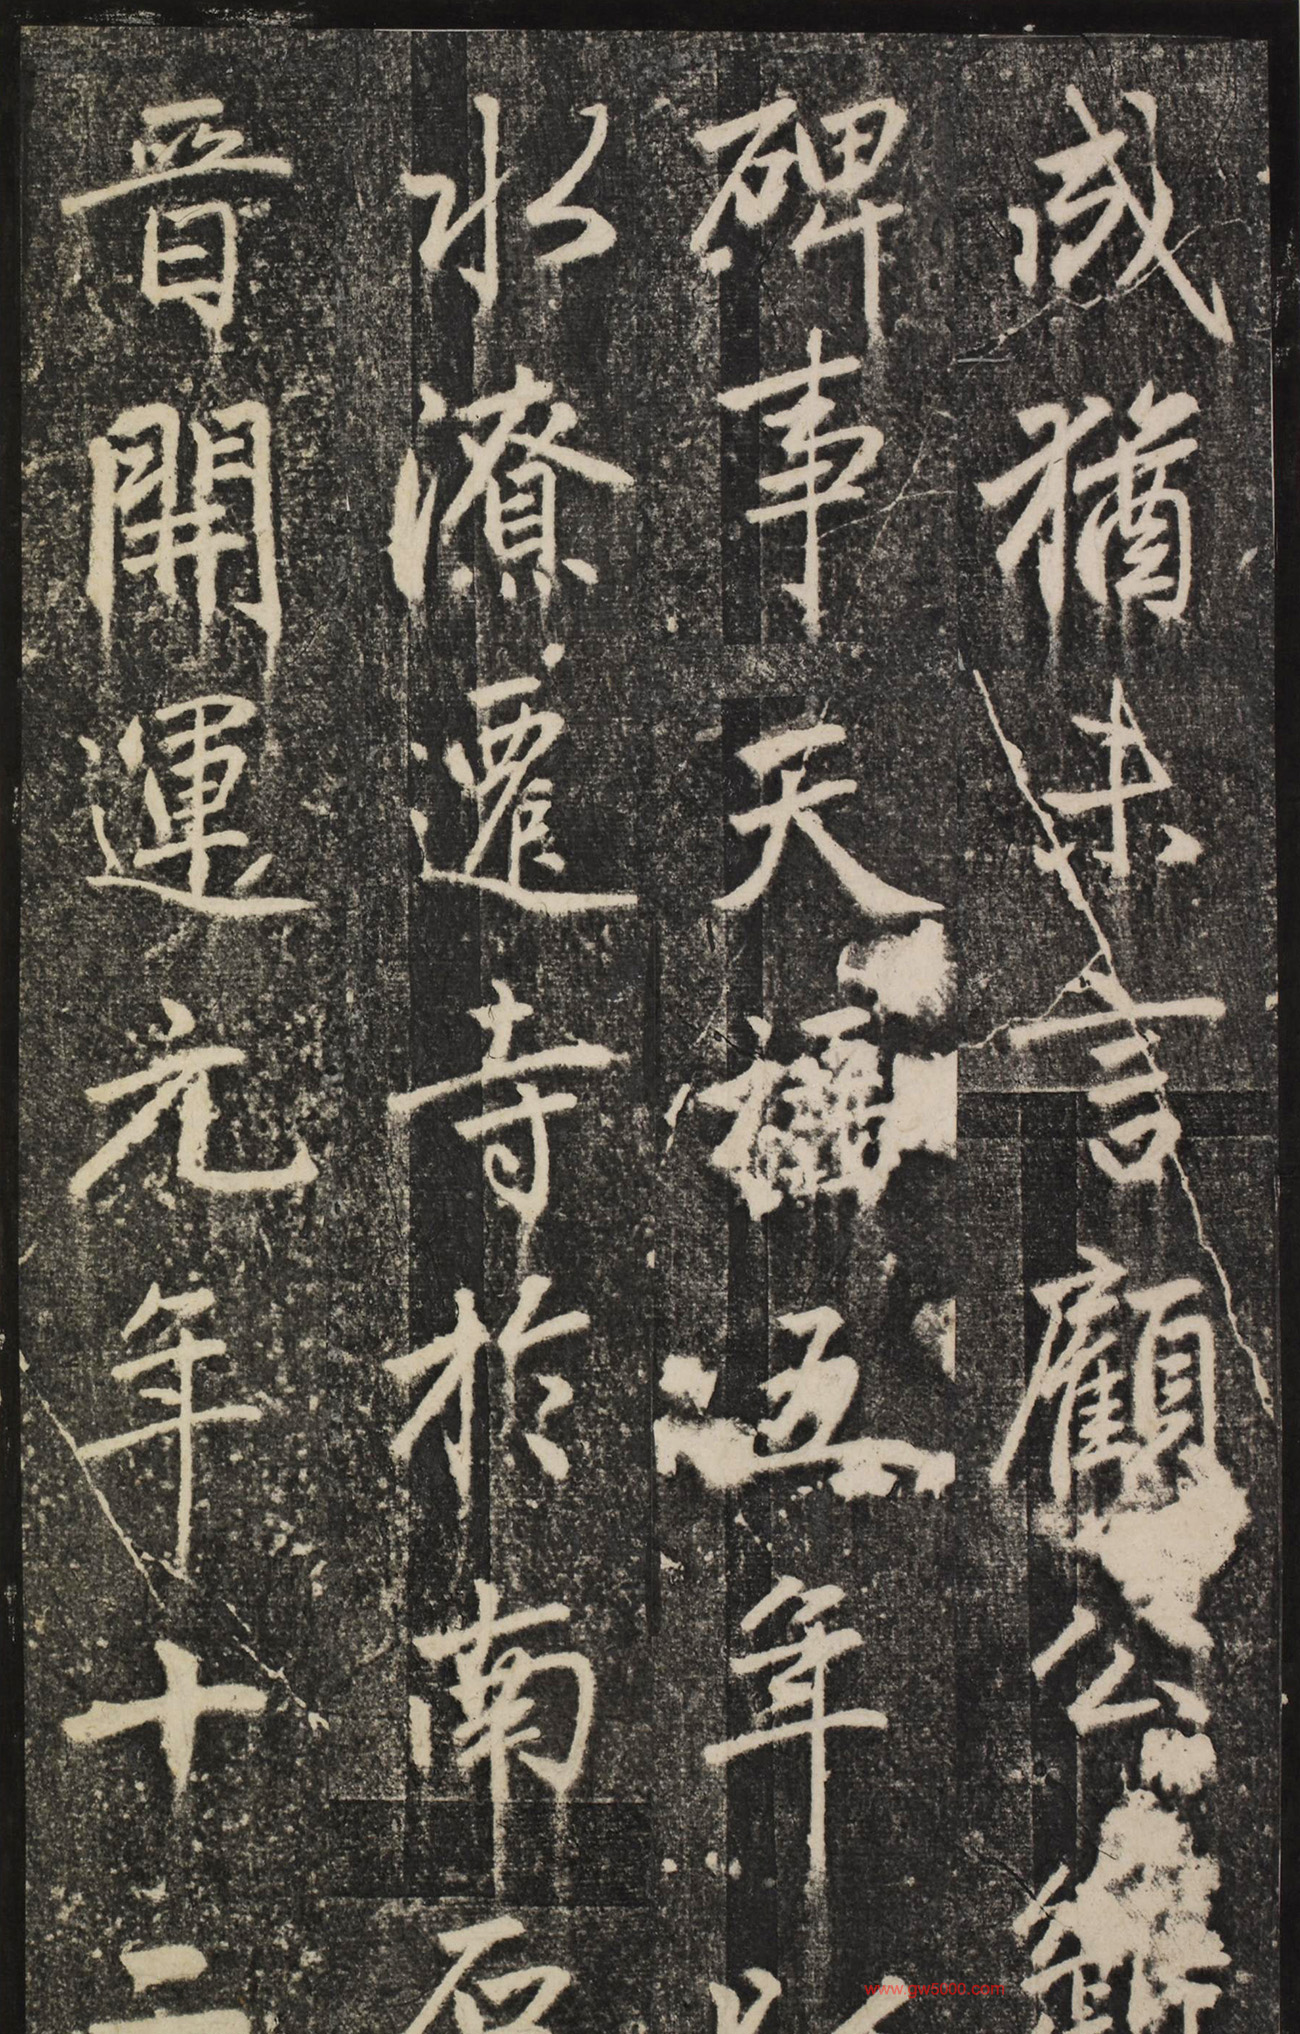 咸猶未言顧公
碑事天福五年
水潦遷寺於南
晉開運元年十二
www.gw5000.com